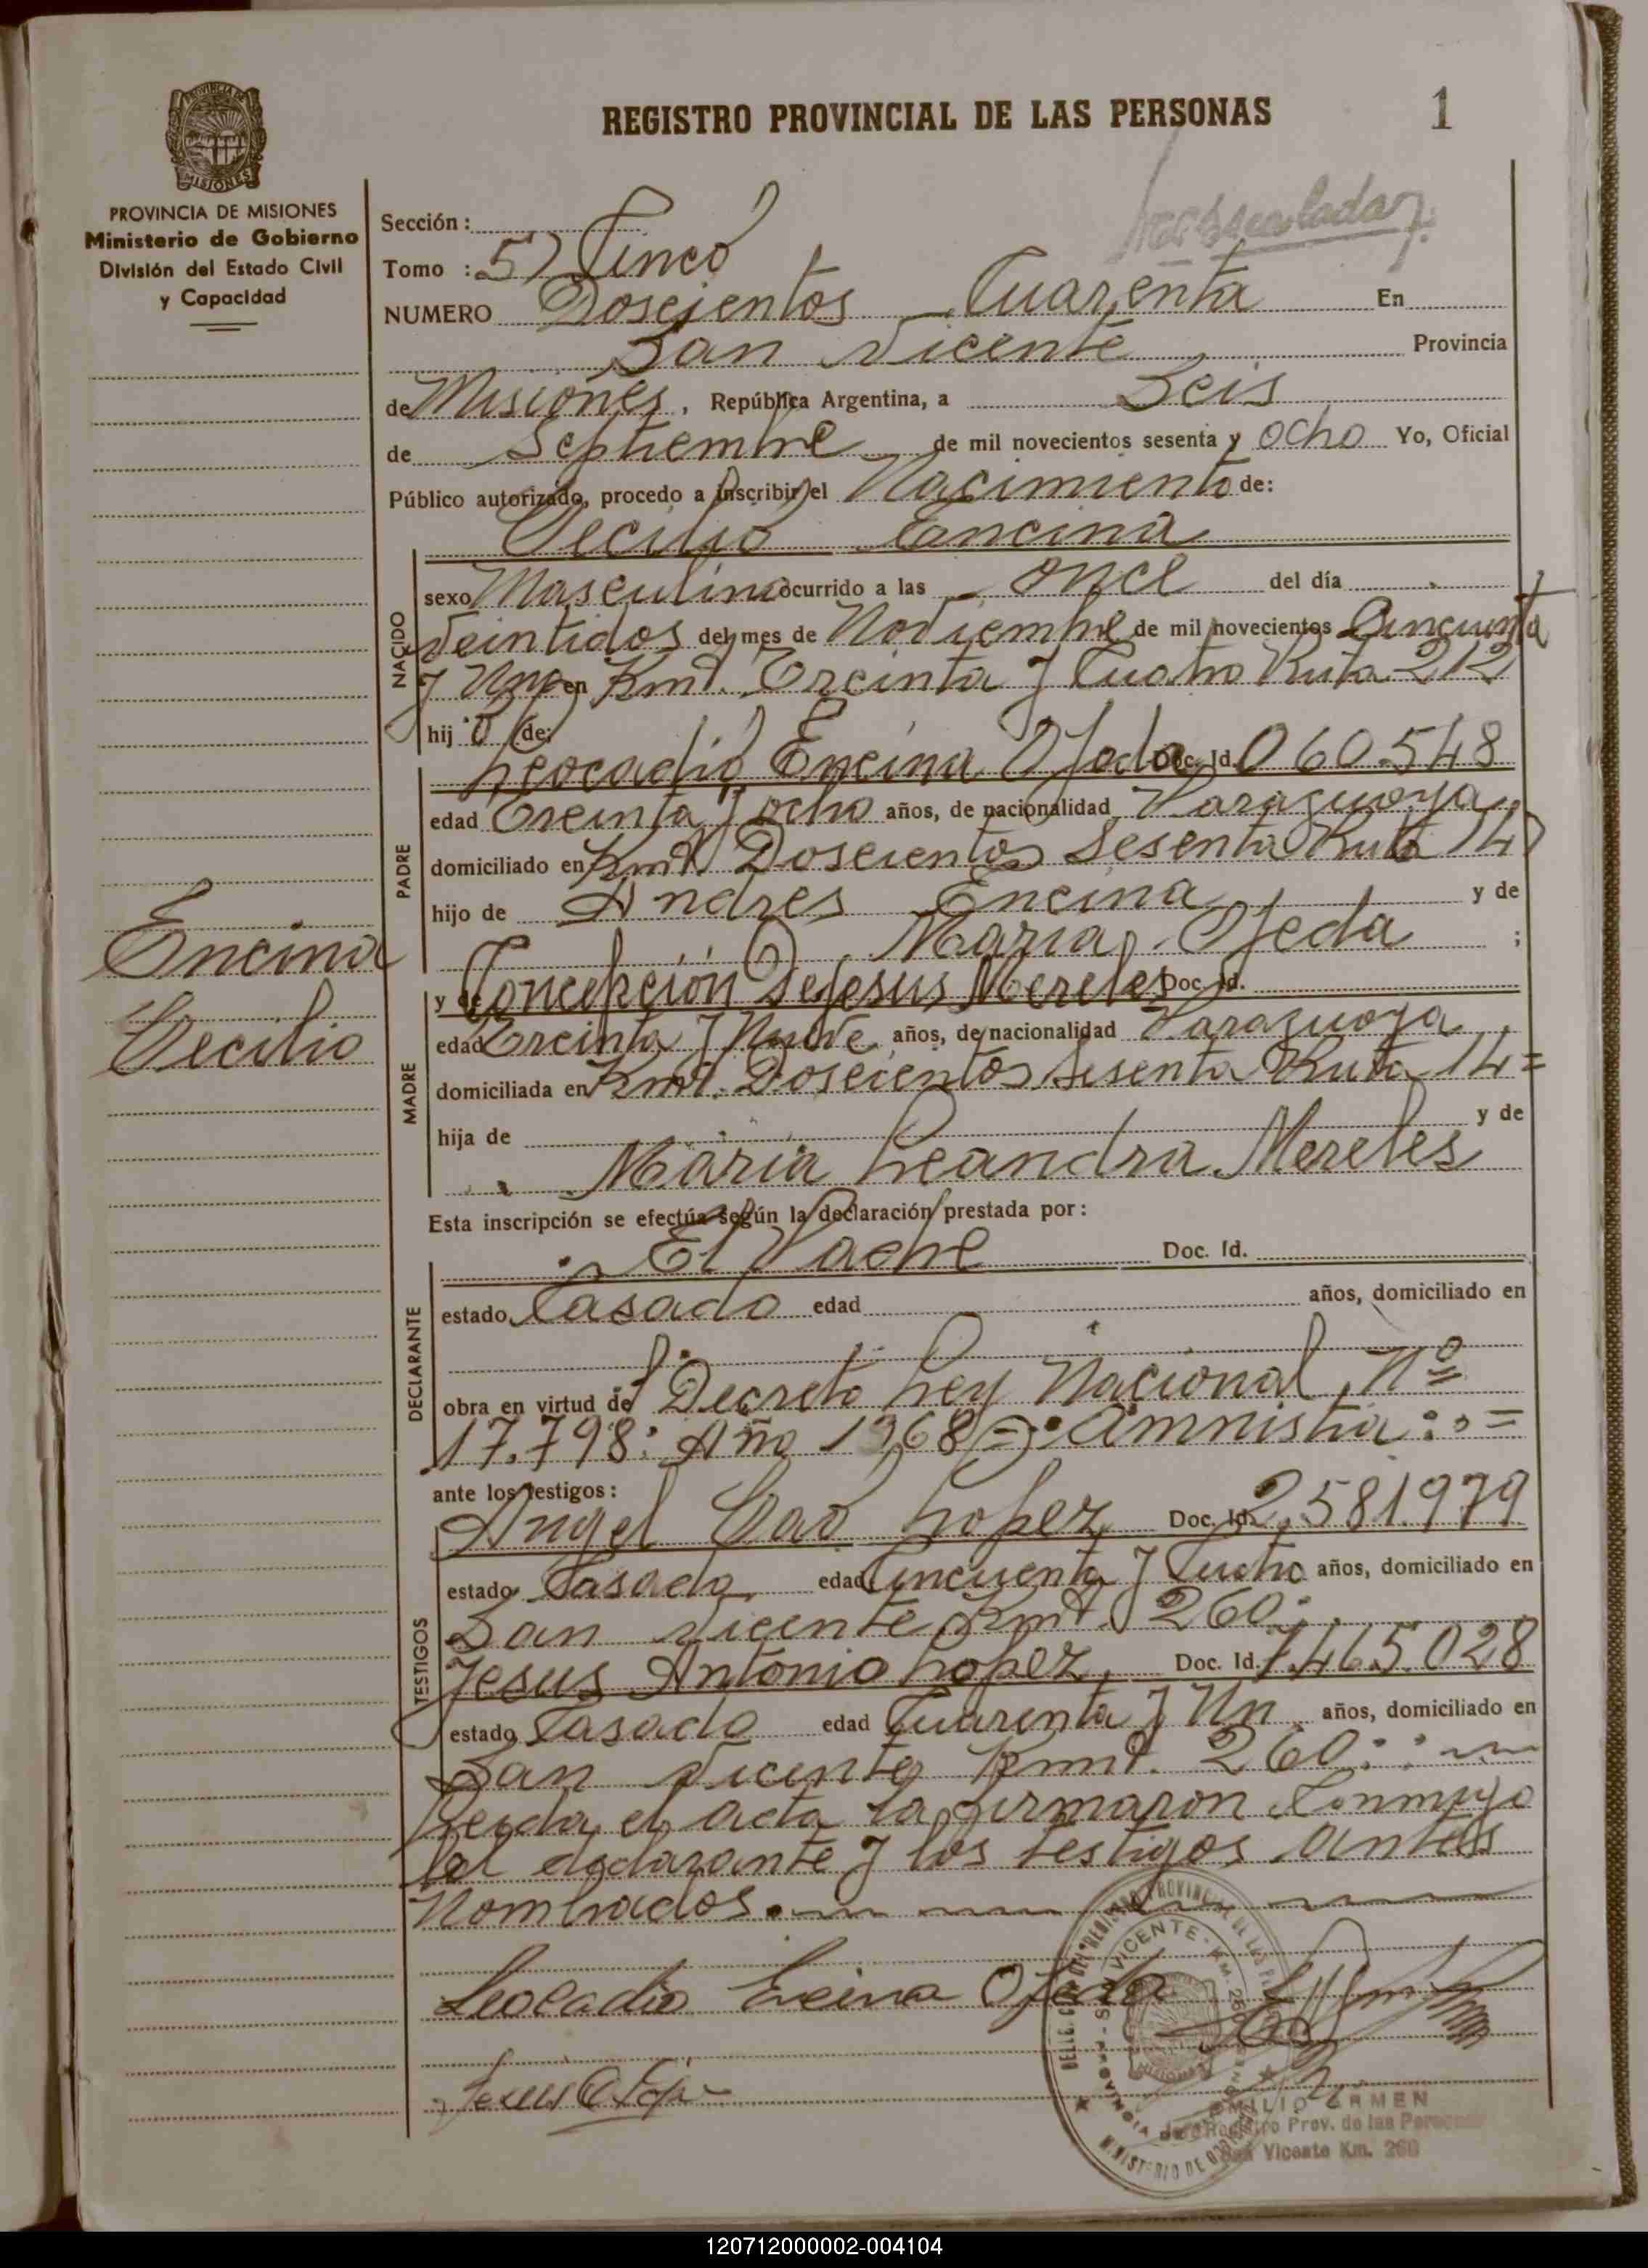 REGISTRO PROVINCIAL DE LAS PERSONAS
1
PROVINCIA DE MISIONES
Ministerio de Gobierno
División del Estado Civil
y Capacidad
MISIONES
Sección :
Tomo : 5) Cinco
NUMERO Doscientos Cuarenta En
San Vicente Provincia
de Misiones, República Argentina, a Seis
de Septiembre de mil novecientos sesenta y ocho Yo, Oficial
Público autorizado, procedo a inscribir el Nacimiento de:
Cecilio Encina
NACIDO
sexo Masculino ocurrido a las once del día
Veintidos del mes de Noviembre de mil novecientos Cincuenta
y Uno en Kmt. Treinta y Cuatro Ruta 212
hij o de:
Leocadio Encina Ojeda Doc. Id. 060.548
PADRE
edad Treinta y ocho años, de nacionalidad Paraguaya,
domiciliado en Kmt. Doscientos Sesenta Ruta 14
hijo de Andres Encina y de
Maria Ojeda ;
Encina
Cecilio
MADRE
y de Concepción DeJesus Mereles Doc. Id.
edad Treinta y Nueve años, de nacionalidad Paraguaya,
domiciliada en Kmt. Doscientos Sesenta Ruta 14=
hija de y de
Maria Leandra Mereles
Esta inscripción se efectúa según la declaración prestada por:
El Padre Doc. Id.
DECLARANTE
estado Casado edad años, domiciliado en
obra en virtud del Decreto Ley Nacional Nº
17.798: Año 1968 Amnistia:
ante los testigos:
Angel Lopez Doc. Id. 2,581.979
TESTIGOS
estado Casado edad Cincuenta y años, domiciliado en
San Vicente Kmt. 260:
Jesus Antonio Lopez, Doc. Id. 7.465.028
estado Casado edad Cuarenta y Un años, domiciliado en
San Vicente Kmt. 260:
Leida el acta la firmaron Conmigo
el declarante y los testigos antes
Nombrados.
Leocadio Encina Ojeda
SAN VICENTE - KM. 260
EMILIO
Registro Prov. de las Personas
San Vicente Km. 260
120712000002-004104